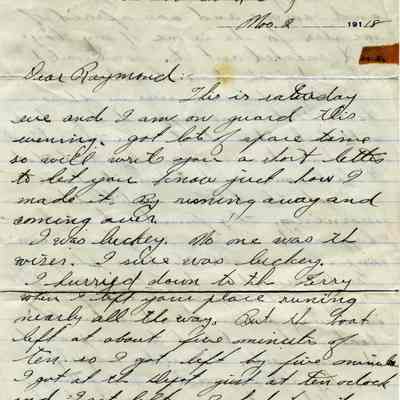 Nov. 2 1918
Dear Raymond:
This is saturday
eve and I am on guard this
evening. got lots of spare time
so will write you a short letter
to let you know just how I
made it my running away and
coming over.
I was luckey. No one was th
wiser. I sure was luckey.
I hurried down to th Ferry
when I left your place runing
nearly all the way. But th boat
left at about five minutes of
Ten. so I got left by five minutes
I got at th Depot just at ten oclock
and